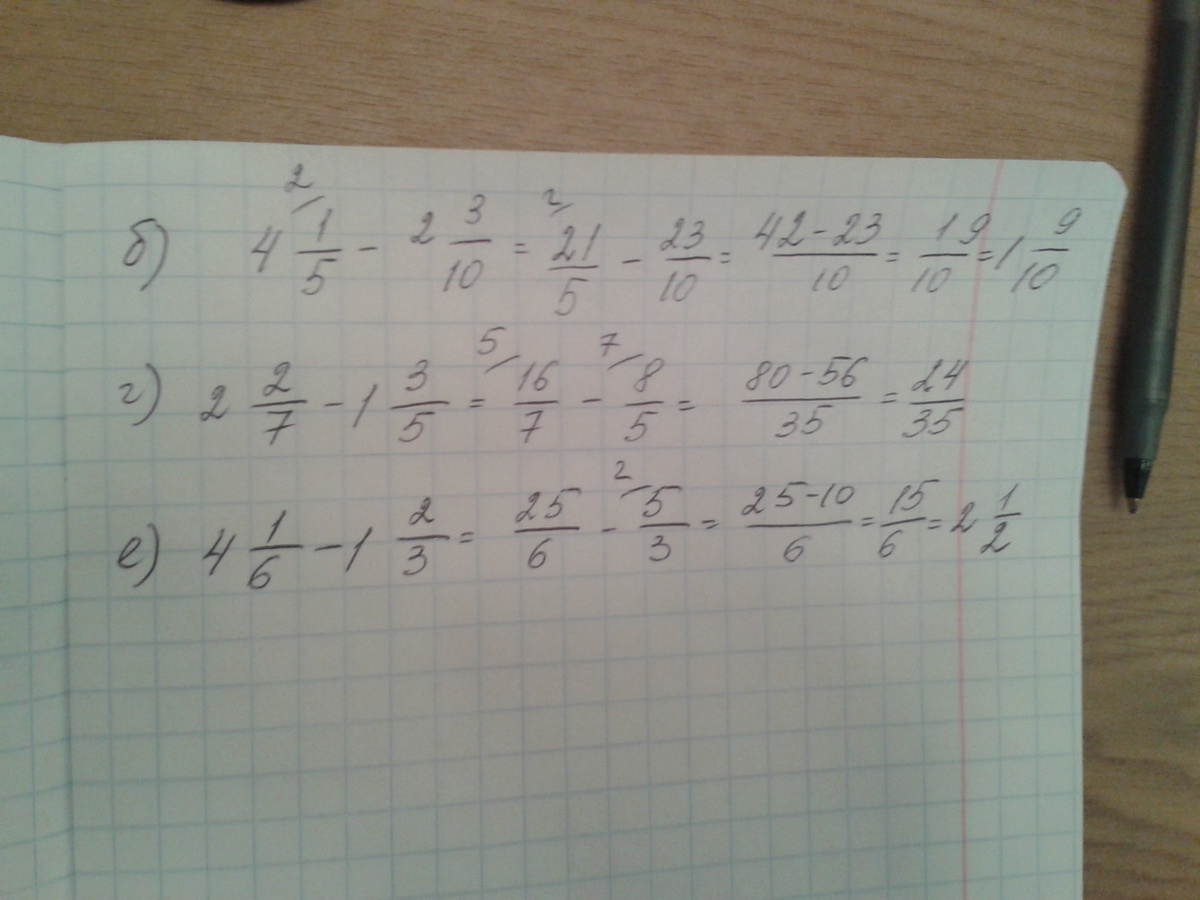 б) 4 2/ 1/5 - 2 3/10 = 2/ 21/5 - 23/10 = 42-23/10 = 19/10 = 1 9/10
г) 2 2/7 - 1 3/5 = 5/ 16/7 - 7/ 8/5 = 80-56/35 = 24/35
е) 4 1/6 - 1 2/3 = 25/6 - 2/ 5/3 = 25-10/6 = 15/6 = 2 1/2